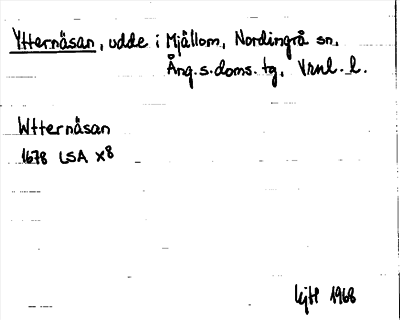 Ytternäsan, udde i Mjällom, Nordingrå sn.
Ång. s. doms. tg. Vrnl. l.
Wtternäsan
1678 LSA X8
1968